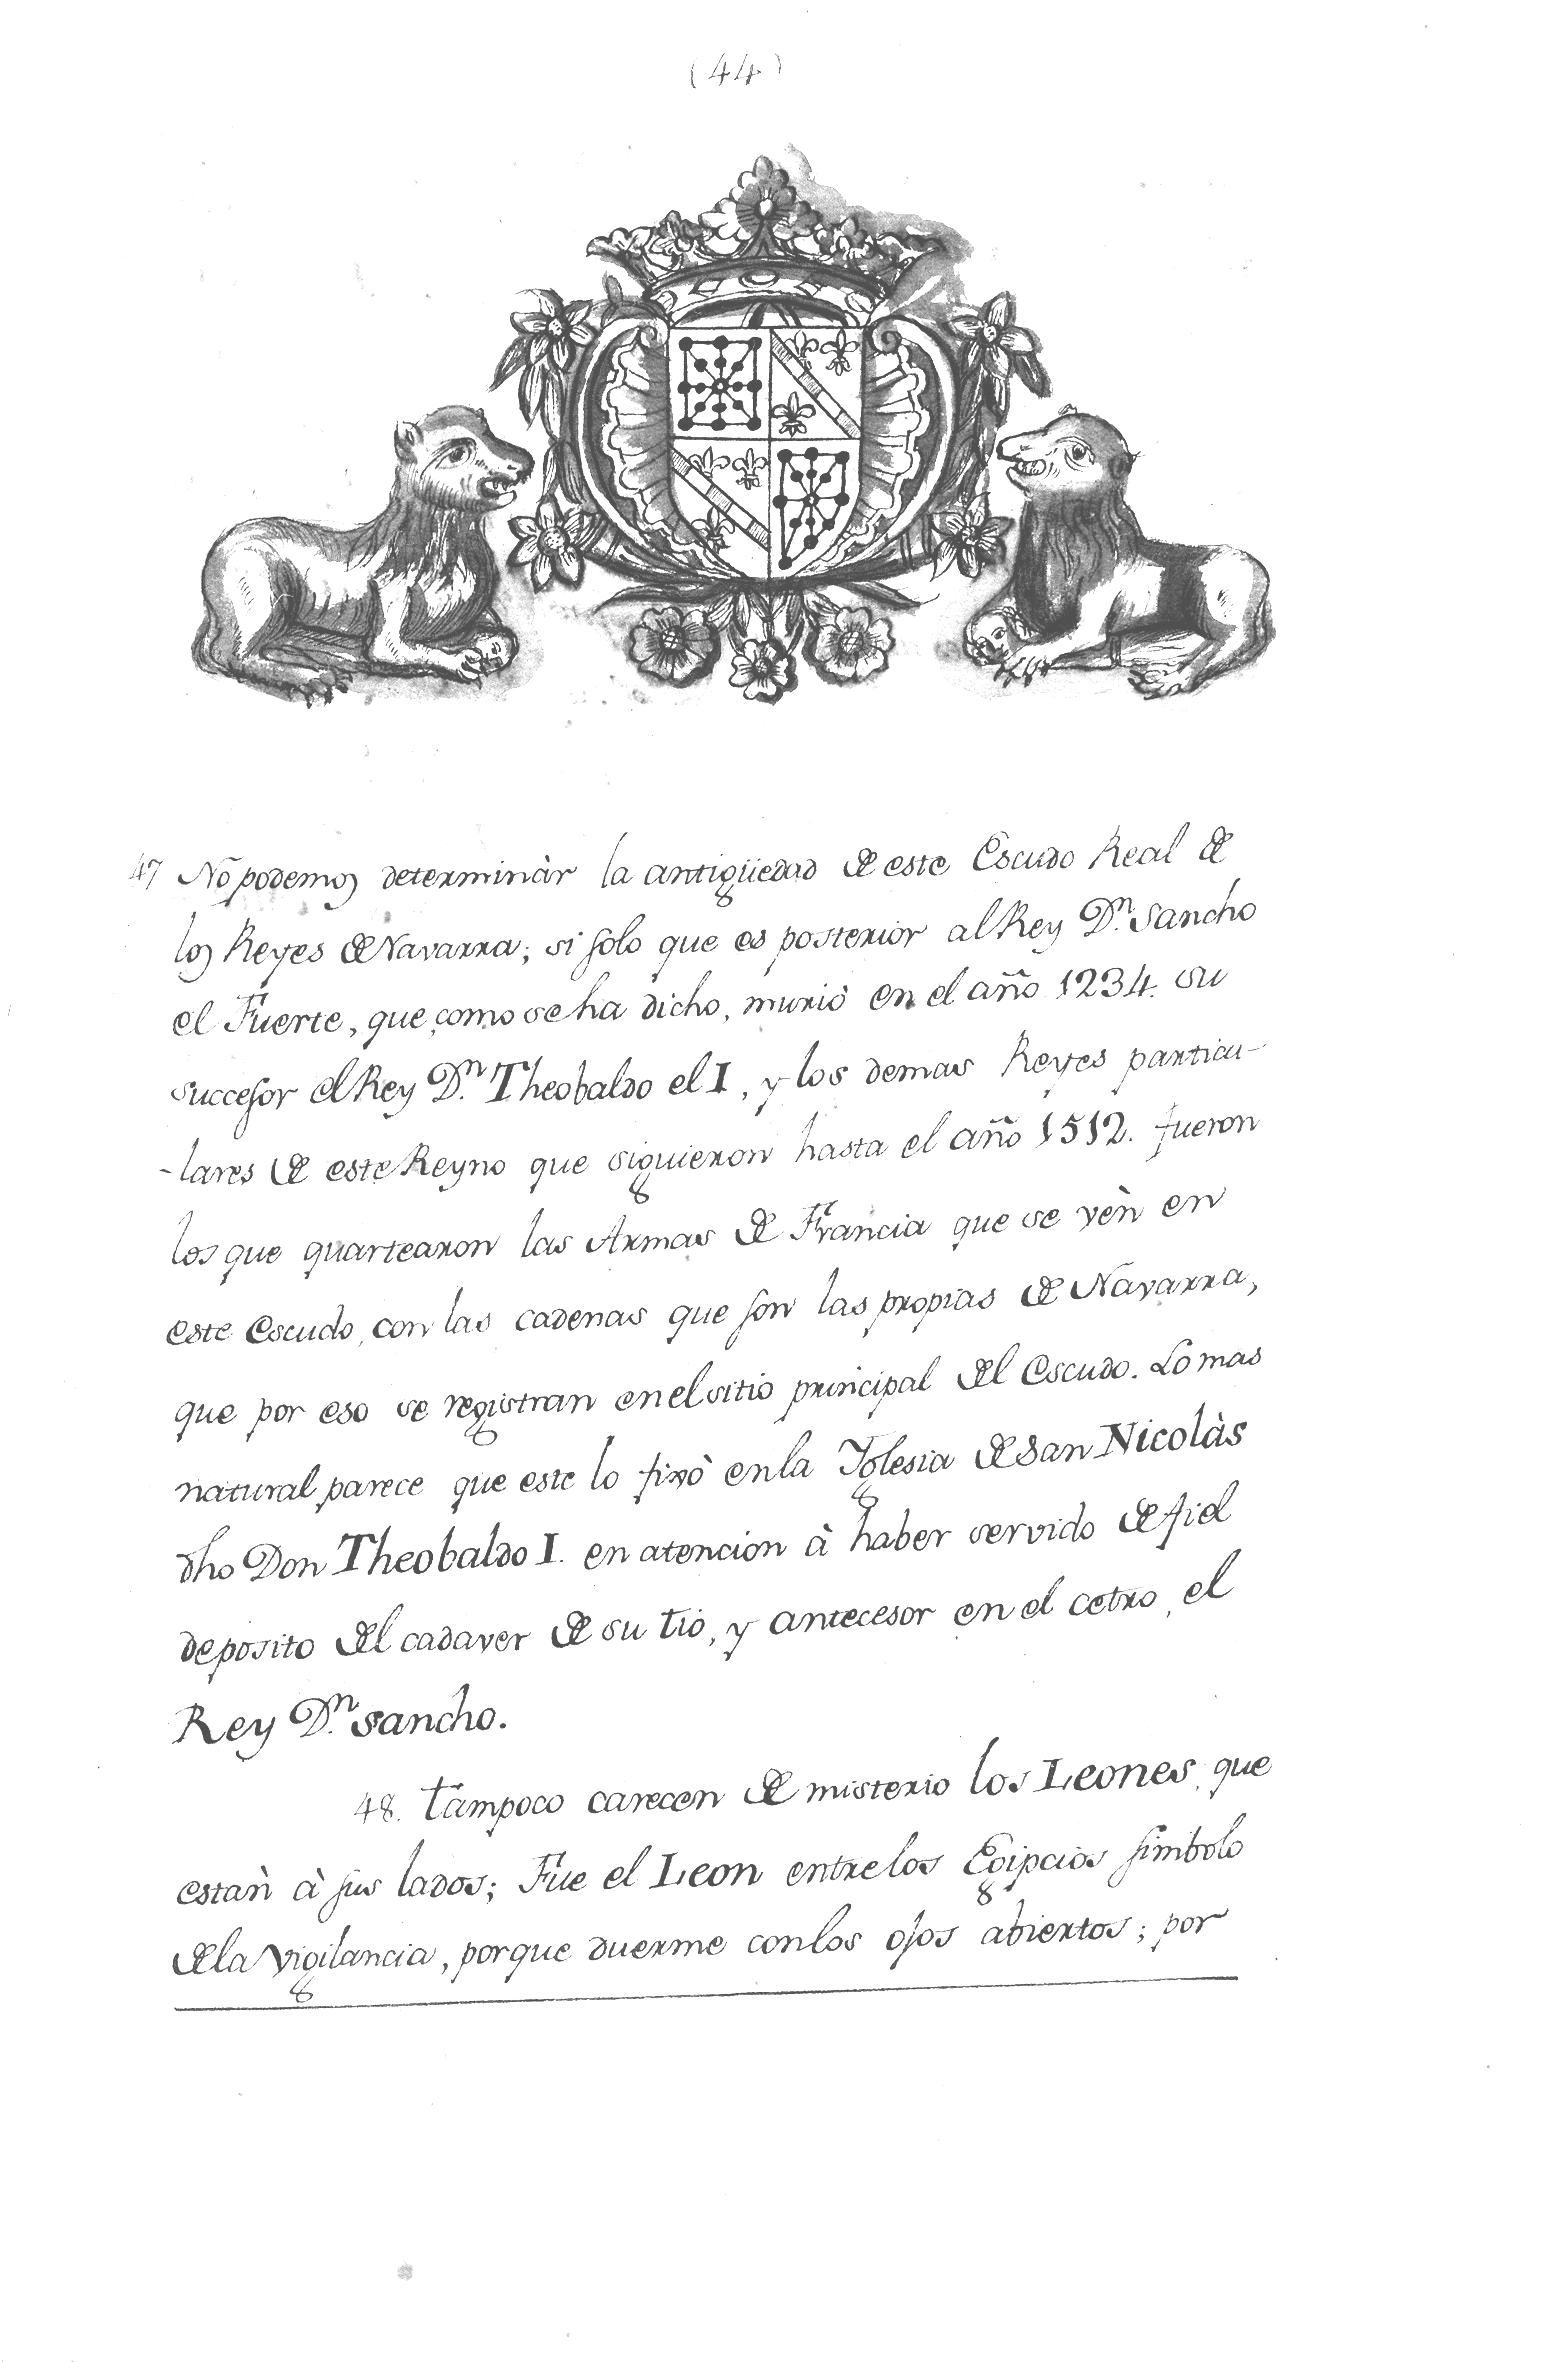 (44)
47 No podemos determinàr la antigüedad de este Escudo Real de
los Reyes de Navarra; si solo que es posterior al Rey D.n Sancho
el Fuerte, que como se ha dicho, muriò en el año 1234. su
succesor el Rey D.n Theobaldo el I, y los demas Reyes particu-
-lares de este Reyno que siguieron hasta el año 1512. fueron
los que quartearon las Armas de Francia que se vèn en
este Escudo, con las cadenas que son las propias de Navarra,
que por eso se registran en el sitio principal del Escudo. Lo mas
natural parece que este lo fixò en la Yglesia de San Nicolàs
dho Don Theobaldo I. en atencion à haber servido de fiel
deposito del cadaver de su tio, y antecesor en el cetro, el
Rey D.n Sancho.
48. Tampoco carecen de misterio los Leones, que
estàn à sus lados; Fue el Leon entre los Egipcios simbolo
de la vigilancia, porque duerme con los ojos abiertos; por